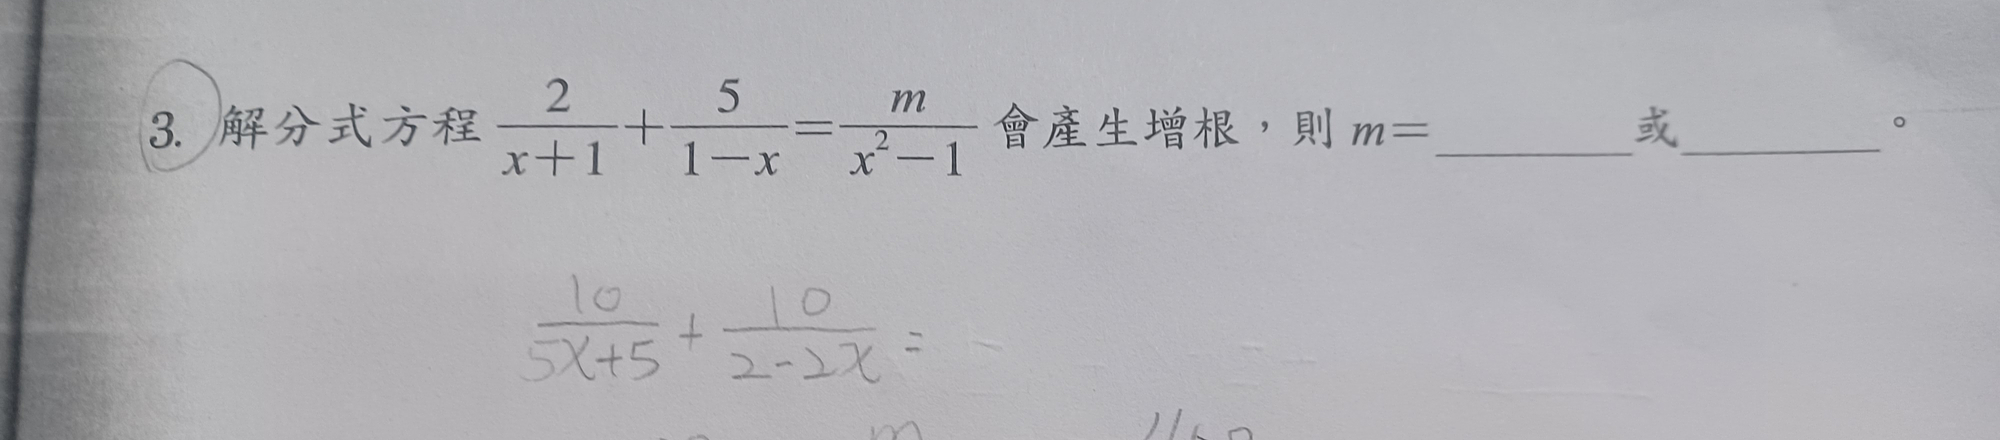 3. 解分式方程 2/(x+1) + 5/(1−x) = m/(x²−1) 會產生增根，則 m=______或______。
10/(5x+5) + 10/(2-2x) =
m